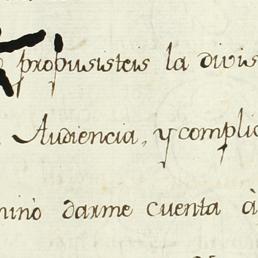 propusisteis la divis
Audiencia, y complic
minò darme cuenta à